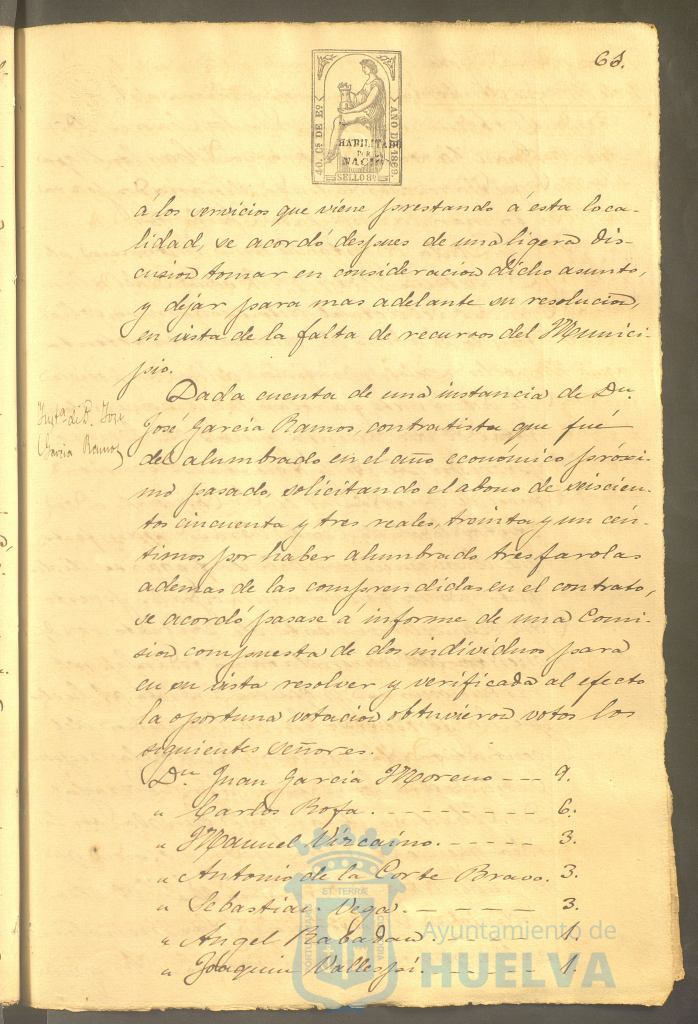 65.
40. Cs DE Eo
AÑO DE 1869.
HABILITADO
POR LA
NACION
SELLO 8º
a los servicios que viene prestando á esta loca-
lidad, se acordó despues de una ligera dis-
cusion tomar en consideracion dicho asunto,
y dejar para mas adelante su resolucion,
en vista de la falta de recursos del Munici-
pio.
Insta. de D. José
Garcia Ramos
Dada cuenta de una instancia de Dn.
José Garcia Ramos, contratista que fué
del alumbrado en el año económico próxi-
mo pasado, solicitando el abono de seiscien-
tos cincuenta y tres reales, treinta y un cén-
timos por haber alumbrado tres farolas
ademas de las comprendidas en el contrato,
se acordó pasase á informe de una Comi-
sion compuesta de dos individuos para
en su vista resolver y verificada al efecto
la oportuna votacion obtuvieron votos los
siguientes señores.
Dn. Juan Garcia Moreno --- 9.
" Carlos Rofa. -------- 6.
" Manuel Vizcaino. ----- 3.
" Antonio de la Corte Bravo. 3.
" Sebastian Vega. ----- 3.
" Angel Rabadan. ---- 1.
" Joaquin Vallespí. ----- 1.
Ayuntamiento de
HUELVA